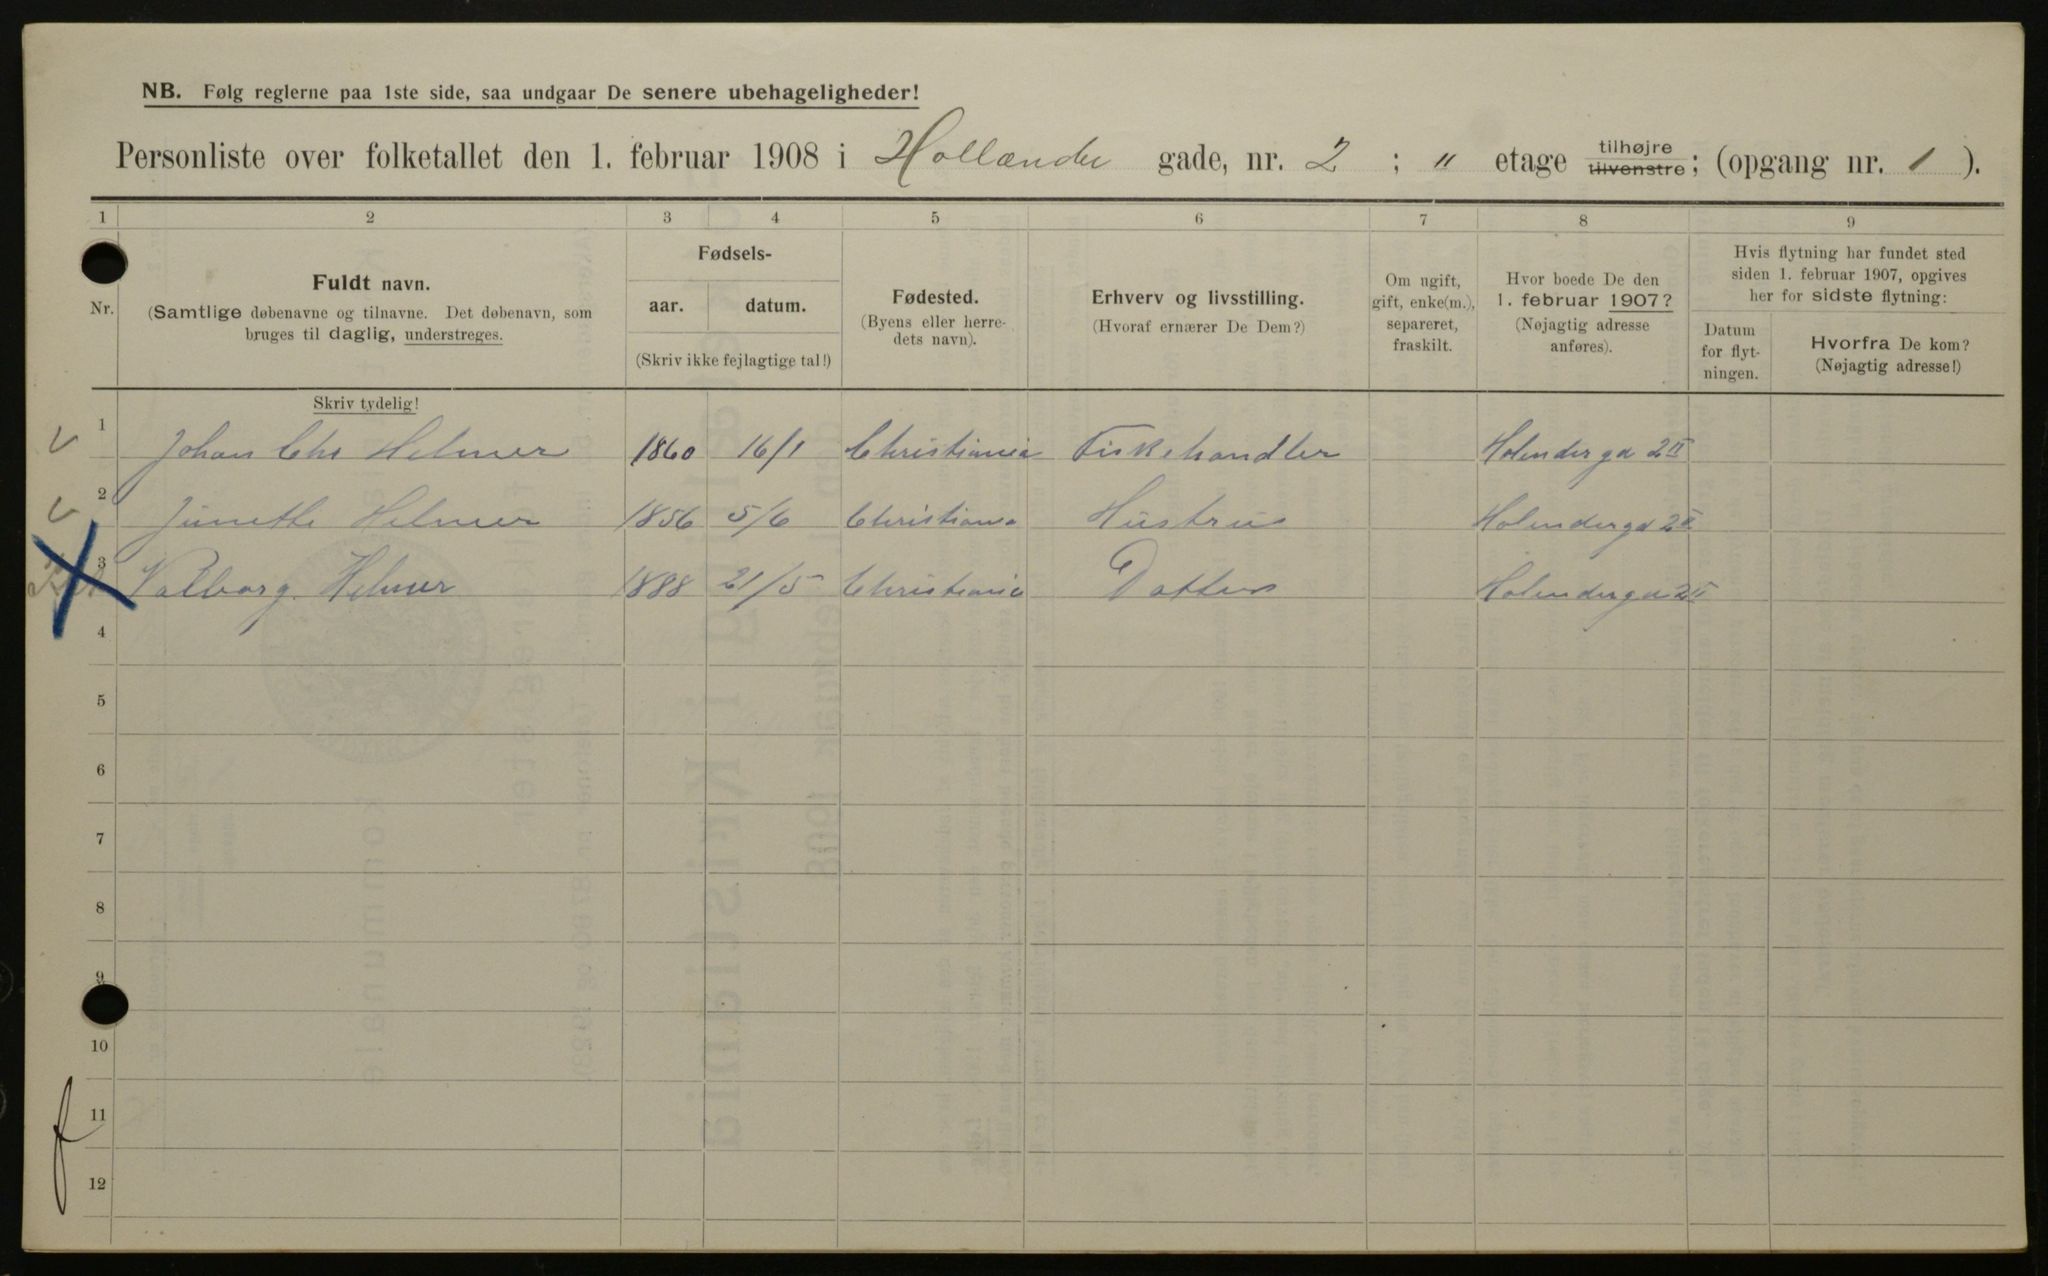 NB. Følg reglerne paa 1ste side, saa undgaar De senere ubehageligheder!
Personliste over folketallet den 1. februar 1908 i Hollænder gade, nr. 2 ; " etage tilhøjre tilvenstre; (opgang nr. 1 ).
1 2 3 4 5 6 7 8 9
Nr.
Fuldt navn.
(Samtlige døbenavne og tilnavne. Det døbenavn, som
bruges til daglig, understreges.
Fødsels-
aar. datum.
(Skriv ikke fejlagtige tal!)
Fødested.
(Byens eller herre-
dets navn).
Erhverv og livsstilling.
(Hvoraf ernærer De Dem?)
Om ugift,
gift, enke(m.),
separeret,
fraskilt.
Hvor boede De den
1. februar 1907?
(Nøjagtig adresse
anføres).
Hvis flytning har fundet sted
siden 1. februar 1907, opgives
her for sidste flytning:
Datum
for flyt-
ningen.
Hvorfra De kom?
(Nøjagtig adresse!)
Skriv tydelig!
1 Johan Chr Helmer 1860 16/1 Christiania Fiskehandler Holendergd 2 II
2 Helmer 1856 5/6 Christiania Hustru Holendergd 2 II
3 Valborg Helmer 1888 21/5 Christiania Datter Holendergd 2 II
4
5
6
7
8
9
10
11
12